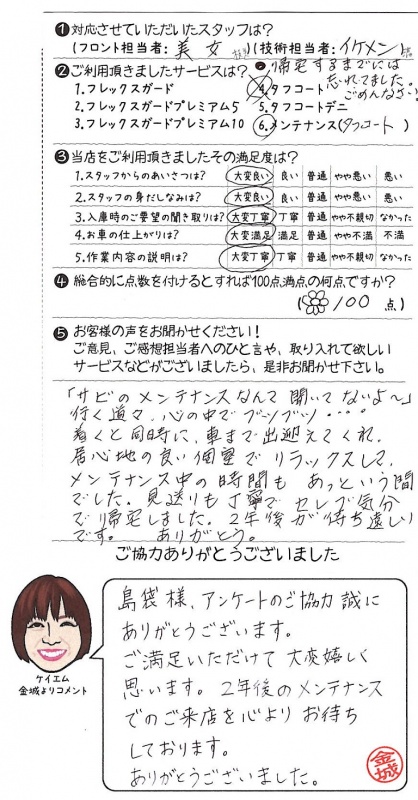 ❶対応させていただいたスタッフは？
(フロント担当者: 美女 )(技術担当者: イケメン )
●帰宅するまでには
忘れてました。
ごめんなさい
❷ご利用頂きましたサービスは？
1.フレックスガード 4.タフコート
2.フレックスガードプレミアム5 5.タフコートデニ
3.フレックスガードプレミアム10 6.メンテナンス(タフコート)
❸当店をご利用頂きましたその満足度は？
1.スタッフからのあいさつは？ 大変良い 良い 普通 やや悪い 悪い
2.スタッフの身だしなみは？ 大変良い 良い 普通 やや悪い 悪い
3.入庫時のご要望の聞き取りは？ 大変丁寧 丁寧 普通 やや不親切 なかった
4.お車の仕上がりは？ 大変満足 満足 普通 やや不満 不満
5.作業内容の説明は？ 大変丁寧 丁寧 普通 やや不親切 なかった
❹総合的に点数を付けるとすれば100点満点の何点ですか？
( 100 点)
❺お客様の声をお聞かせください！
ご意見、ご感想担当者へのひと言や、取り入れて欲しい
サービスなどがございましたら、是非お聞かせ下さい。
「サビのメンテナンスなんて聞いてないよ～」
行く道々、心の中でブツブツ・・・・
着くと同時に、車まで出迎えてくれ、
居心地の良い個室でリラックスして、
メンテナンス中の時間もあっという間
でした。見送りも丁寧でセレブ気分
で帰宅しました。2年後が待ち遠しい
です。 ありがとう。
ご協力ありがとうございました
島袋様、アンケートのご協力誠に
ありがとうございます。
ご満足いただけて大変嬉しく
思います。2年後のメンテナンス
でのご来店を心よりお待ち
しております。
ありがとうございました。
ケイエム
金城よりコメント
金城